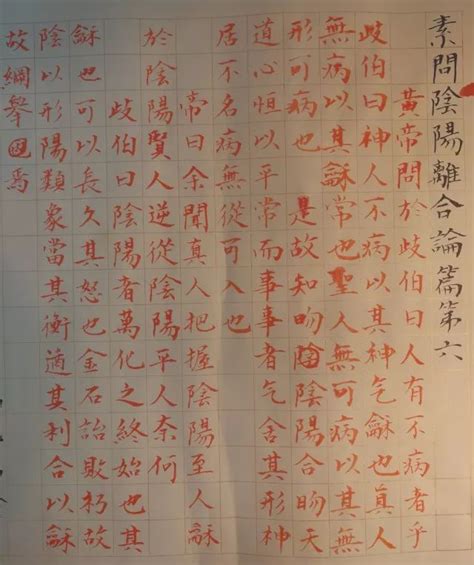 素問陰陽離合論篇第六
黃帝問於歧伯曰人有不病者乎
歧伯曰神人不病以其神气龢也真人
無病以其龢常也聖人無可病以其無
形可病也是故知吻陰陽合吻天
道心恒以平常而事事者气舍其形神
居不名病無從可入也
帝曰余聞真人把握陰陽至人龢
於陰陽賢人逆從陰陽平人奈何
歧伯曰陰陽者萬化之終始也其
龢也可以長久其怒也金石詒敗朽故
陰以形陽類象當其衡適其利合以龢
故綱舉焉